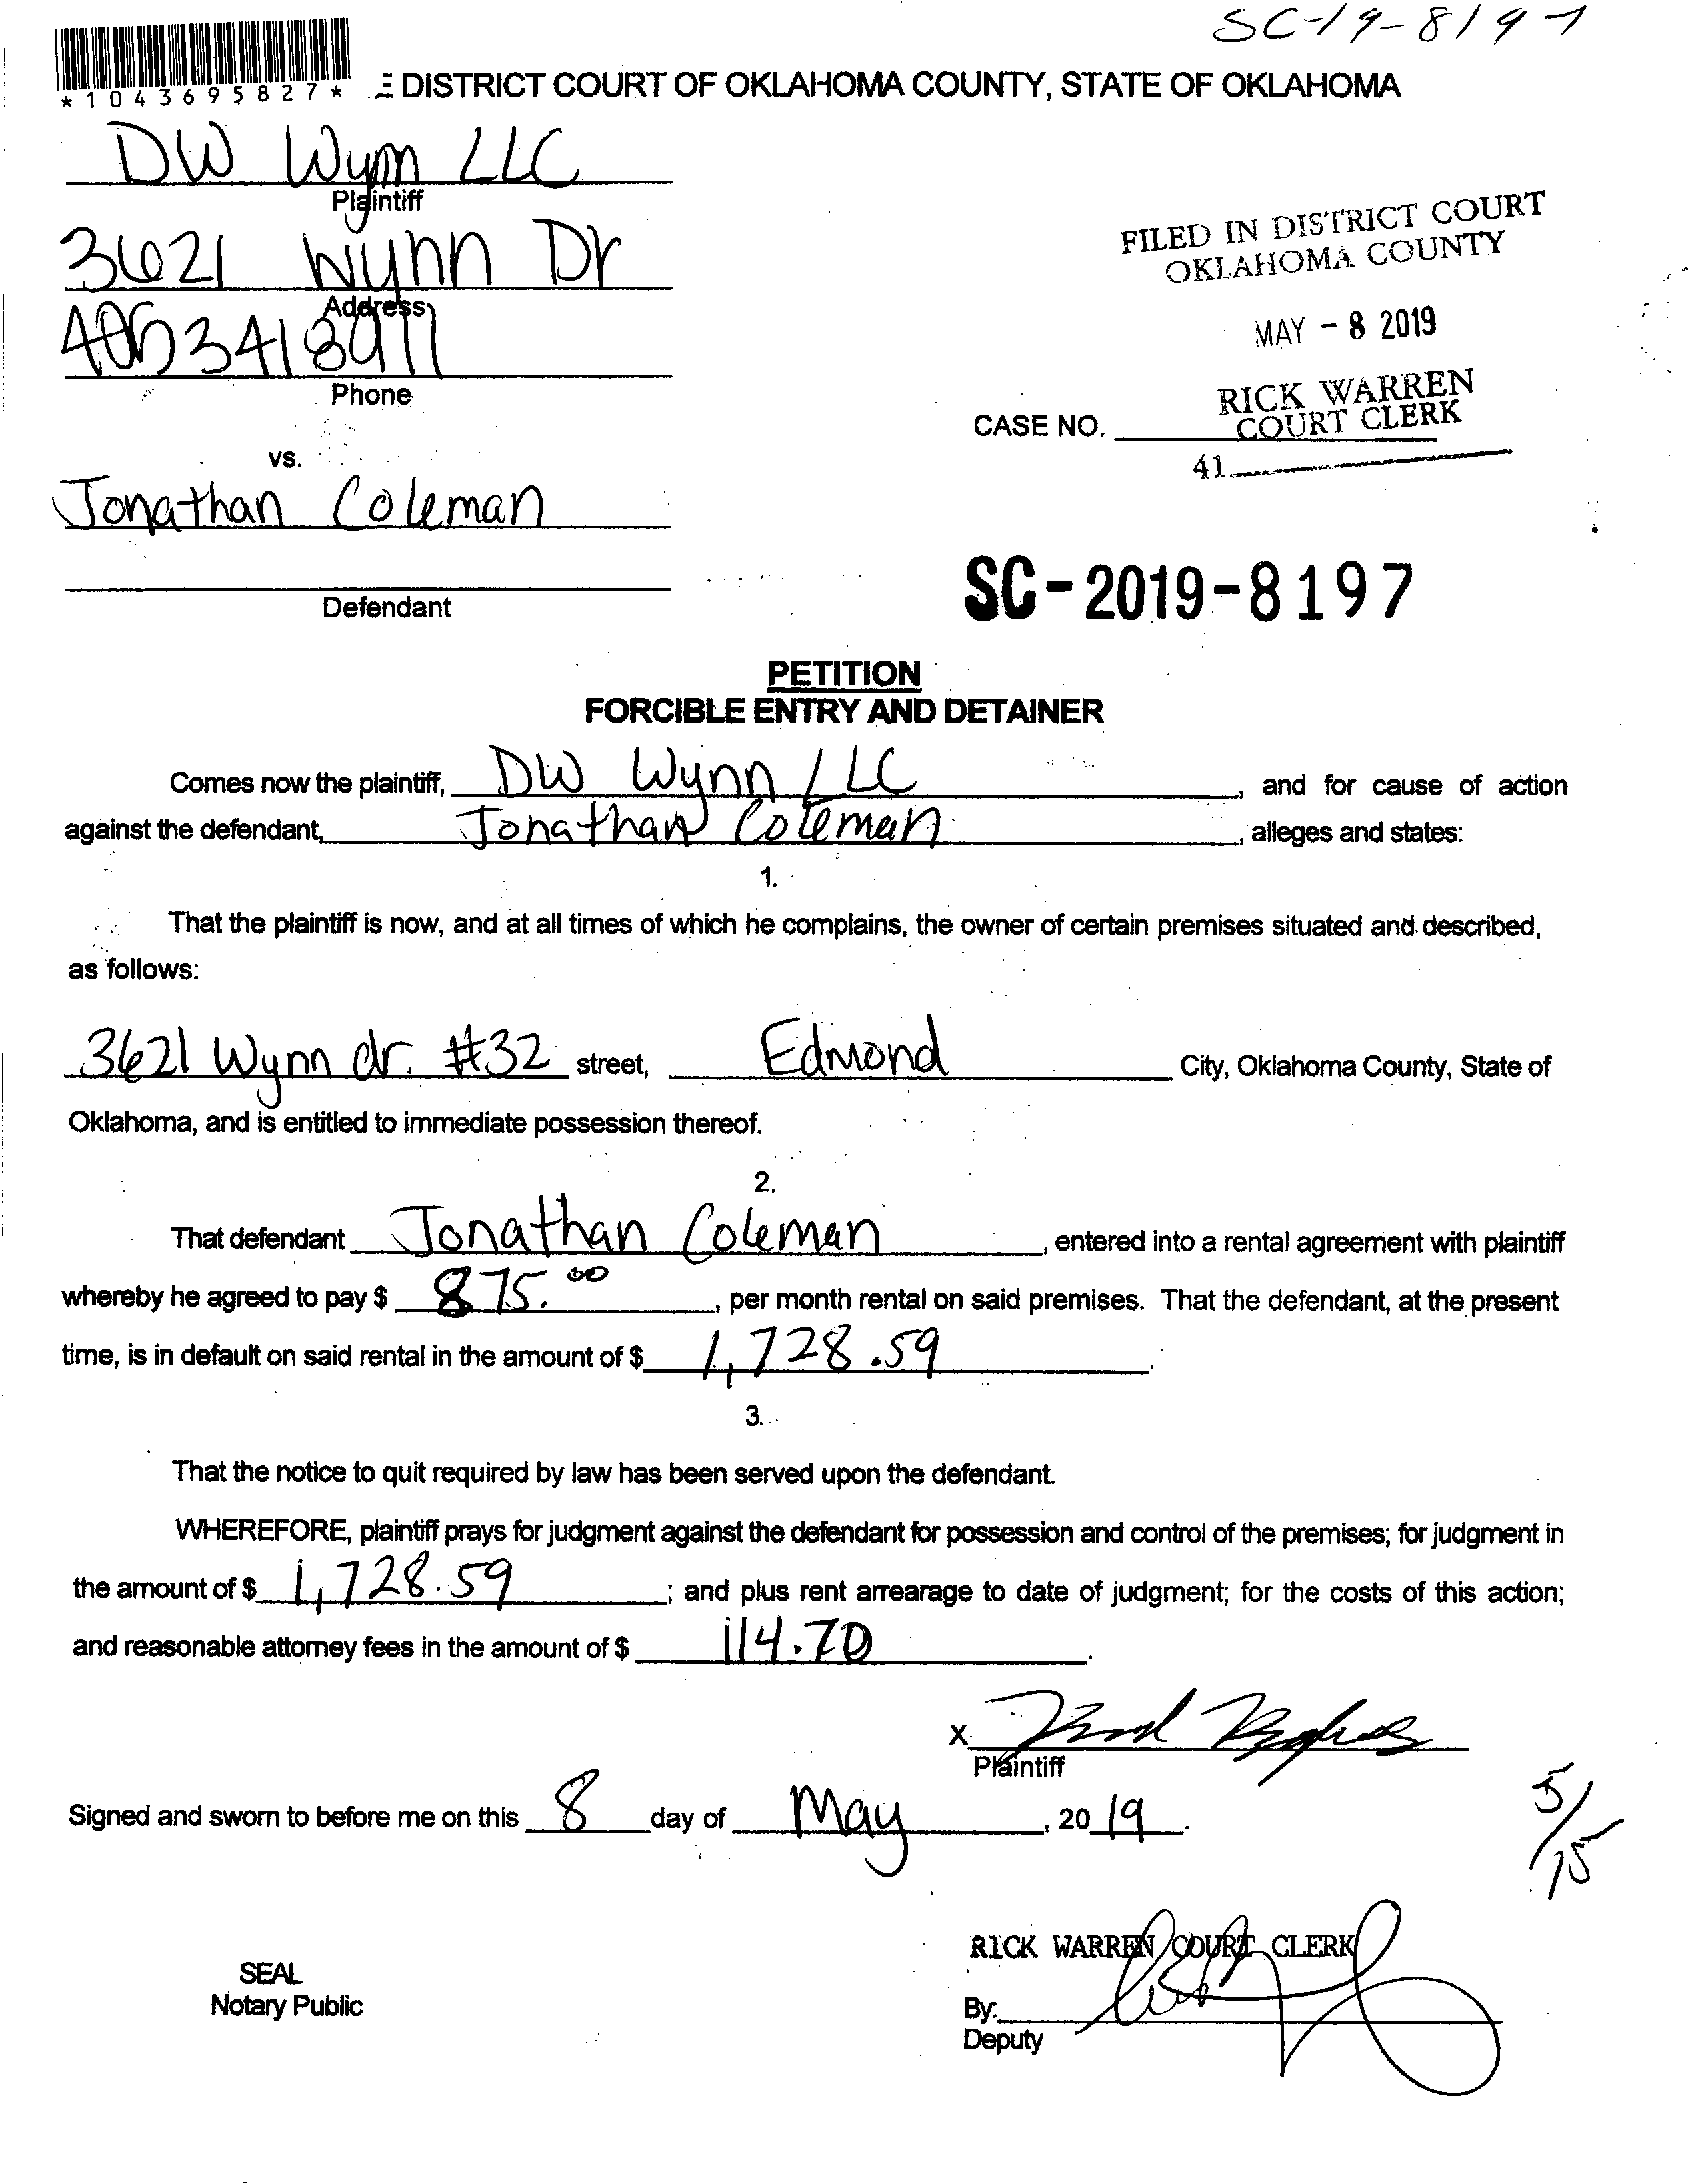 SC-19-8197
*1043695827*
E DISTRICT COURT OF OKLAHOMA COUNTY, STATE OF OKLAHOMA
DW Wynn LLC
Plaintiff
3621 Wynn Dr
Address
4053418911
Phone
vs.
Jonathan Coleman
Defendant
FILED IN DISTRICT COURT
OKLAHOMA COUNTY
MAY - 8 2019
RICK WARREN
COURT CLERK
CASE NO.
41
SC-2019-8197
PETITION
FORCIBLE ENTRY AND DETAINER
Comes now the plaintiff, DW Wynn LLC, and for cause of action
against the defendant, Jonathan Coleman, alleges and states:
1.
That the plaintiff is now, and at all times of which he complains, the owner of certain premises situated and described,
as follows:
3621 Wynn dr. #32 street, Edmond City, Oklahoma County, State of
Oklahoma, and is entitled to immediate possession thereof.
2.
That defendant Jonathan Coleman, entered into a rental agreement with plaintiff
whereby he agreed to pay $ 875.00, per month rental on said premises. That the defendant, at the present
time, is in default on said rental in the amount of $ 1,728.59.
3.
That the notice to quit required by law has been served upon the defendant.
WHEREFORE, plaintiff prays for judgment against the defendant for possession and control of the premises; for judgment in
the amount of $ 1,728.59; and plus rent arrearage to date of judgment; for the costs of this action;
and reasonable attorney fees in the amount of $ 114.70.
X
Plaintiff
Signed and sworn to before me on this 8 day of May, 2019.
5/15
RICK WARREN COURT CLERK
SEAL
Notary Public
By:
Deputy